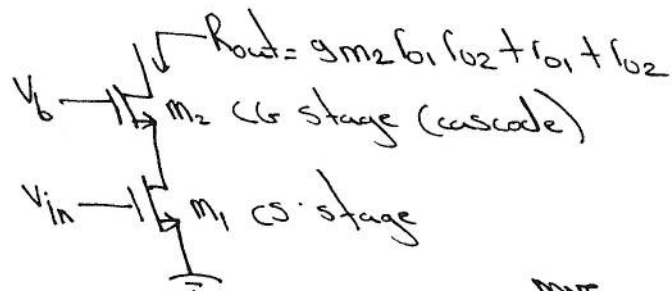 Rout = gm2 ro1 ro2 + ro1 + ro2
Vb
m2 CG stage (cascode)
Vin
m1 CS. stage